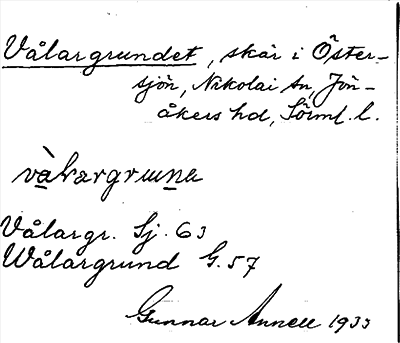 Vålargrundet, skär i Öster-
sjön, Nikolai sn, Jön-
åkers hd, Sörml. l.
vàlargruna
Vålargr. Sj. 63
Wålargrund G. 57
Gunnar Annell 1933